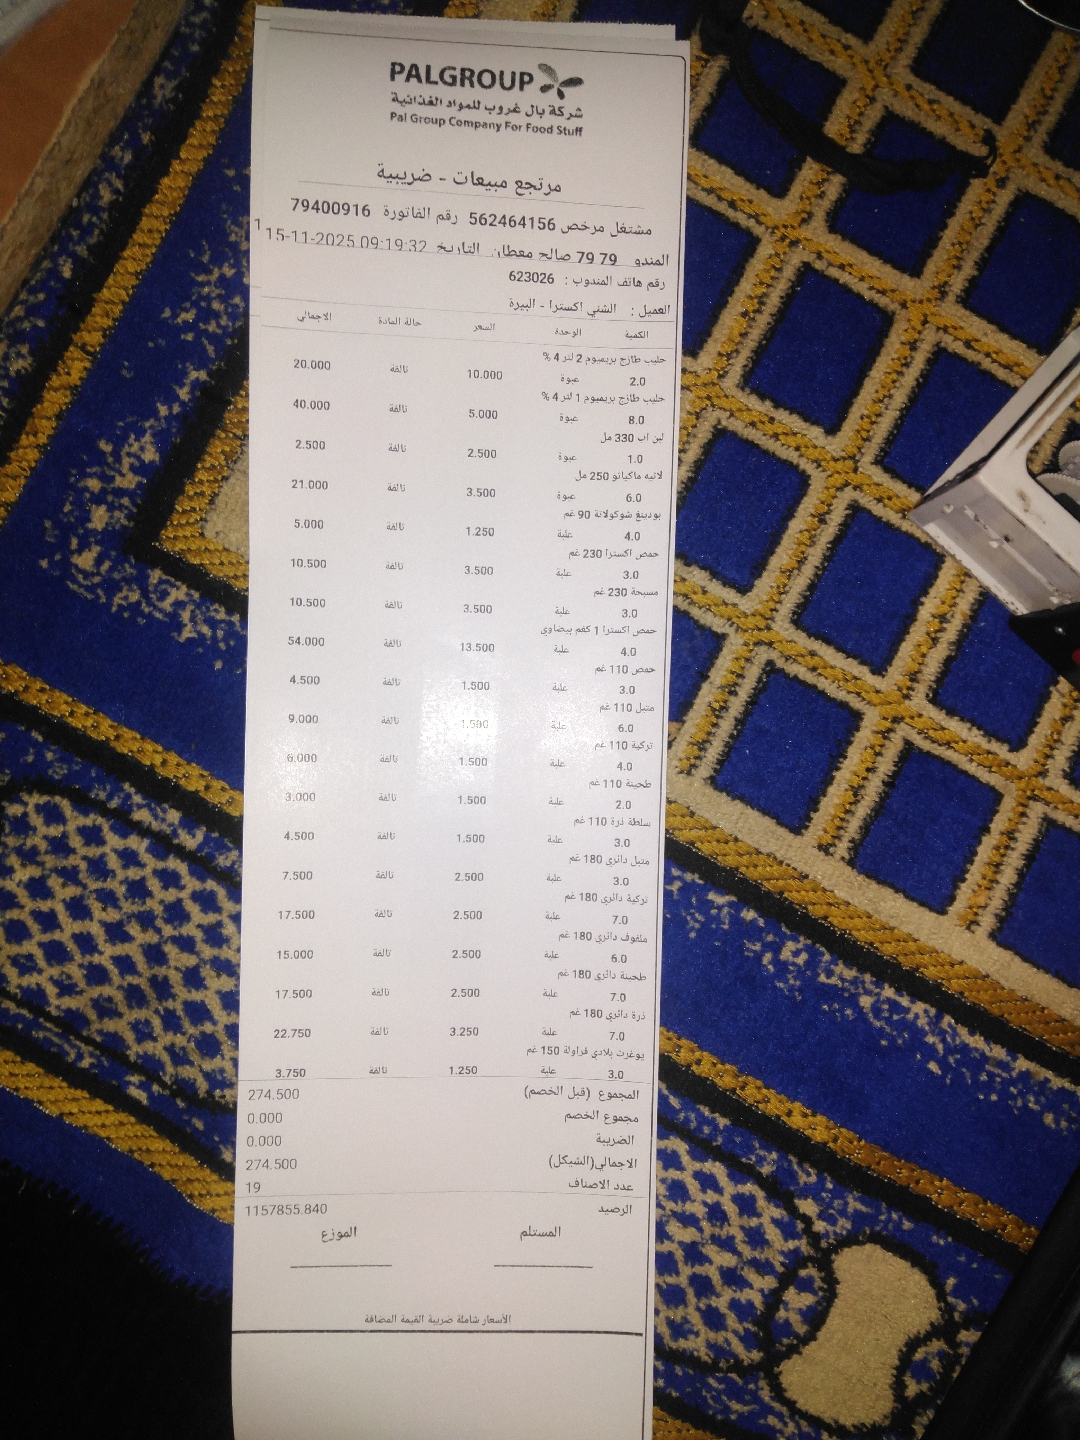 PALGROUP
شركة بال غروب للمواد الغذائية
Pal Group Company For Food Stuff
مرتجع مبيعات - ضريبية
مشتغل مرخص 562464156 رقم الفاتورة 79400916
المندو 79 79 صالح معطان التاريخ 15-11-2025 09:19:32 1
رقم هاتف المندوب : 623026
العميل : الشني اكسترا - البيرة
الكمية الوحدة السعر حالة المادة الاجمالي
حليب طازج بريميوم 2 لتر 4 %
2.0 عبوة 10.000 تالفة 20.000
حليب طازج بريميوم 1 لتر 4 %
8.0 عبوة 5.000 تالفة 40.000
لبن اب 330 مل
1.0 عبوة 2.500 تالفة 2.500
لاتيه ماكياتو 250 مل
6.0 عبوة 3.500 تالفة 21.000
بودينغ شوكولاتة 90 غم
4.0 علبة 1.250 تالفة 5.000
حمص اكسترا 230 غم
3.0 علبة 3.500 تالفة 10.500
مسبحة 230 غم
3.0 علبة 3.500 تالفة 10.500
حمص اكسترا 1 كغم بيضاوي
4.0 علبة 13.500 تالفة 54.000
حمص 110 غم
3.0 علبة 1.500 تالفة 4.500
متبل 110 غم
6.0 علبة 1.500 تالفة 9.000
تركية 110 غم
4.0 علبة 1.500 تالفة 6.000
طحينة 110 غم
2.0 علبة 1.500 تالفة 3.000
سلطة ذرة 110 غم
3.0 علبة 1.500 تالفة 4.500
متبل دائري 180 غم
3.0 علبة 2.500 تالفة 7.500
تركية دائري 180 غم
7.0 علبة 2.500 تالفة 17.500
ملفوف دائري 180 غم
6.0 علبة 2.500 تالفة 15.000
طحينة دائري 180 غم
7.0 علبة 2.500 تالفة 17.500
ذرة دائري 180 غم
7.0 علبة 3.250 تالفة 22.750
يوغرت بلادي فراولة 150 غم
3.0 علبة 1.250 تالفة 3.750
المجموع (قبل الخصم) 274.500
مجموع الخصم 0.000
الضريبة 0.000
الاجمالي(الشيكل) 274.500
عدد الاصناف 19
الرصيد 1157855.840
المستلم الموزع
الأسعار شاملة ضريبة القيمة المضافة